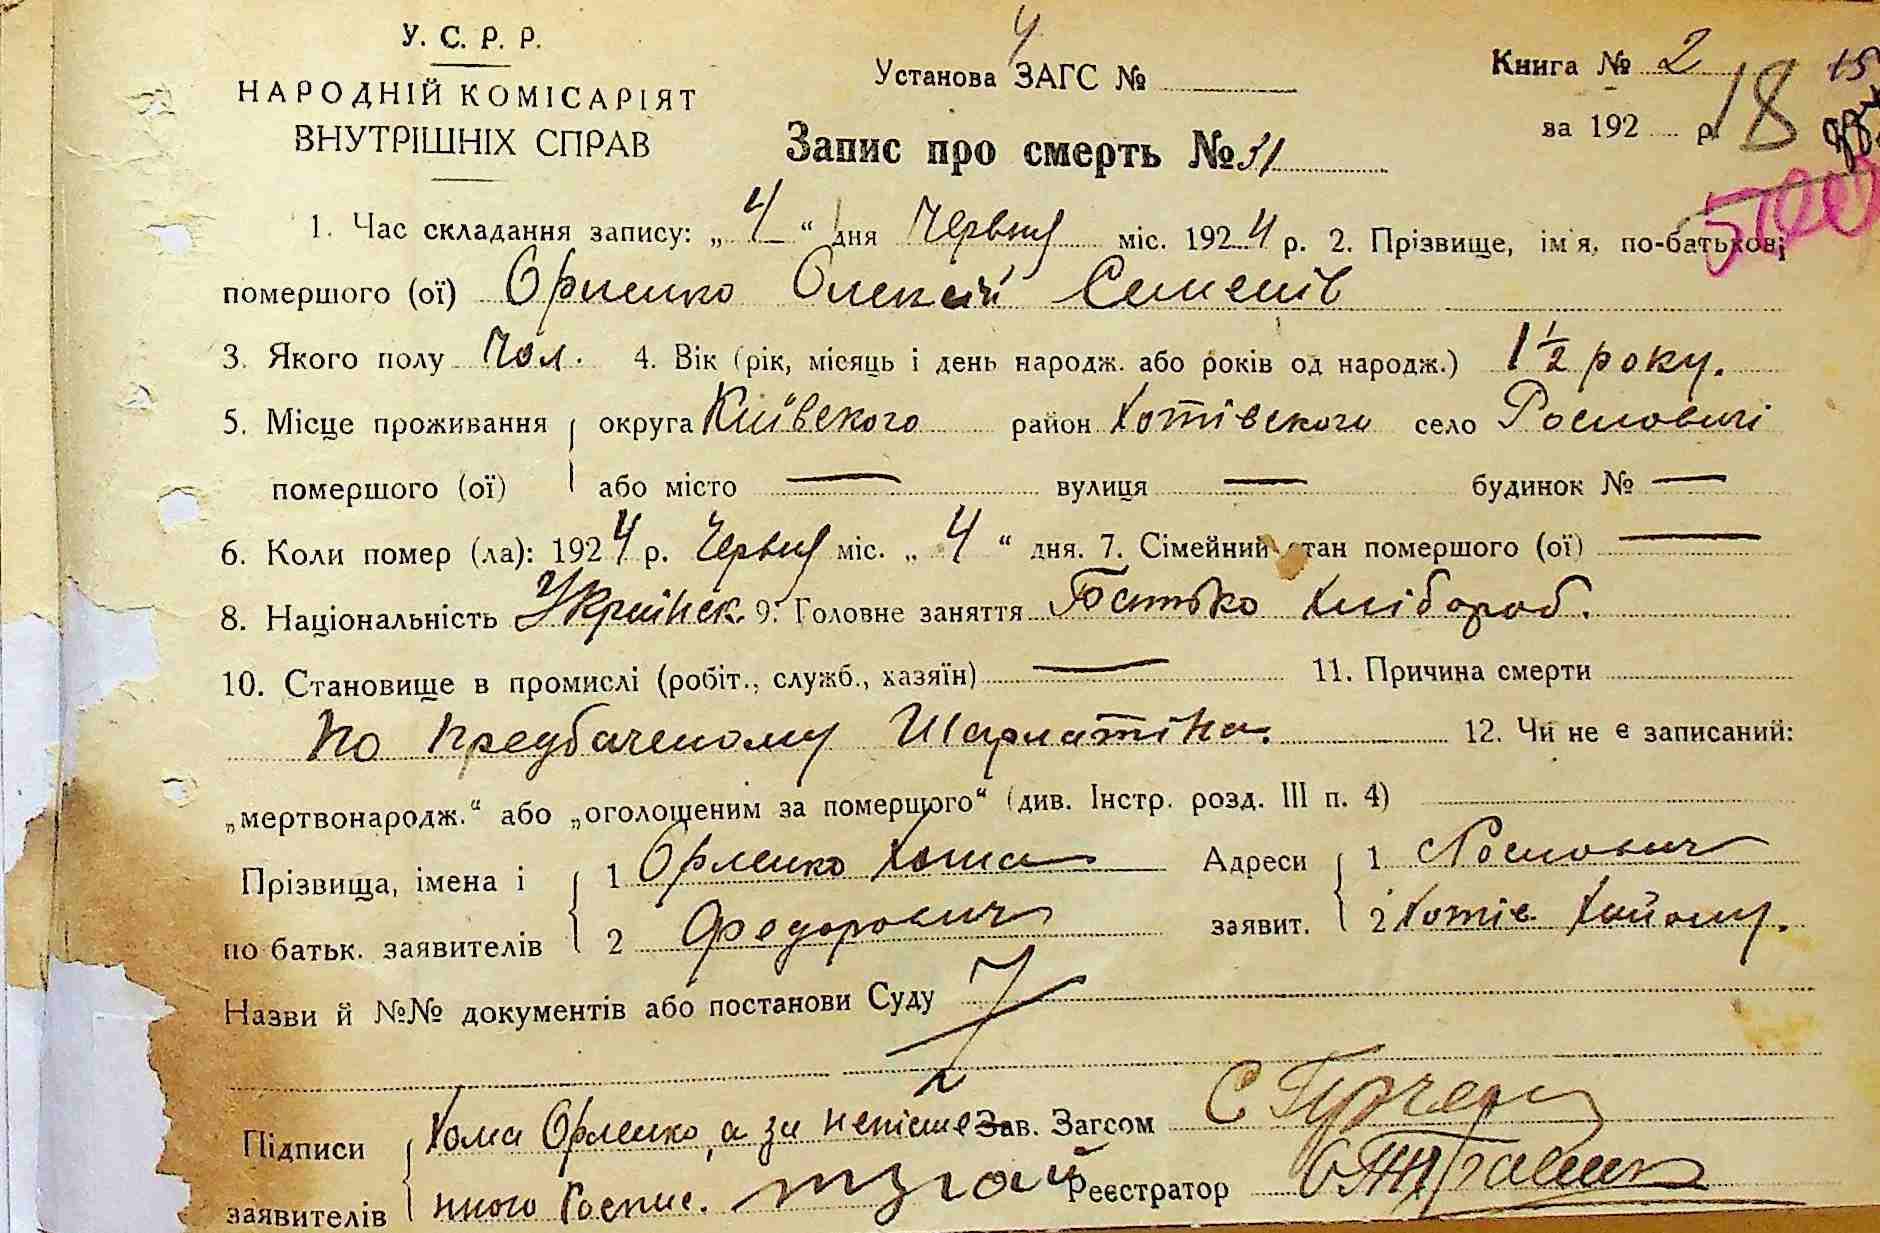 У. С. Р. Р.
НАРОДНІЙ КОМІСАРІЯТ
ВНУТРІШНІХ СПРАВ
Установа ЗАГС № 4
Книга № 2 15
за 192 р. 18
Запис про смерть № 31
1. Час складання запису: „4“ дня Червня міс. 1924 р. 2. Прізвище, ім'я, по-батькові
помершого (ої) Орленко Олексій Семенів
3. Якого полу Чол. 4. Вік (рік, місяць і день народж. або років од народж.) 1½ року.
5. Місце проживання округа Київського район Хотівського село Рославичі
помершого (ої) або місто — вулиця — будинок № —
6. Коли помер (ла): 1924 р. Червня міс. „4“ дня. 7. Сімейний стан помершого (ої) —
8. Національність Українск. 9. Головне заняття Батько хлібороб.
10. Становище в промислі (робіт., служб., хазяїн) — 11. Причина смерти
по предбаченому Шарлатіна. 12. Чи не є записаний:
„мертвонародж.“ або „оголошеним за помершого“ (див. Інстр. розд. III п. 4)
Прізвища, імена і 1 Орленко Хома Адреси 1 Рославич
по батьк. заявителів 2 Федорович заявит. 2 Хотів. Району.
Назви й №№ документів або постанови Суду
Підписи Хома Орленко, а за неписме Зав. Загсом
заявителів нного Роспис. Реєстратор